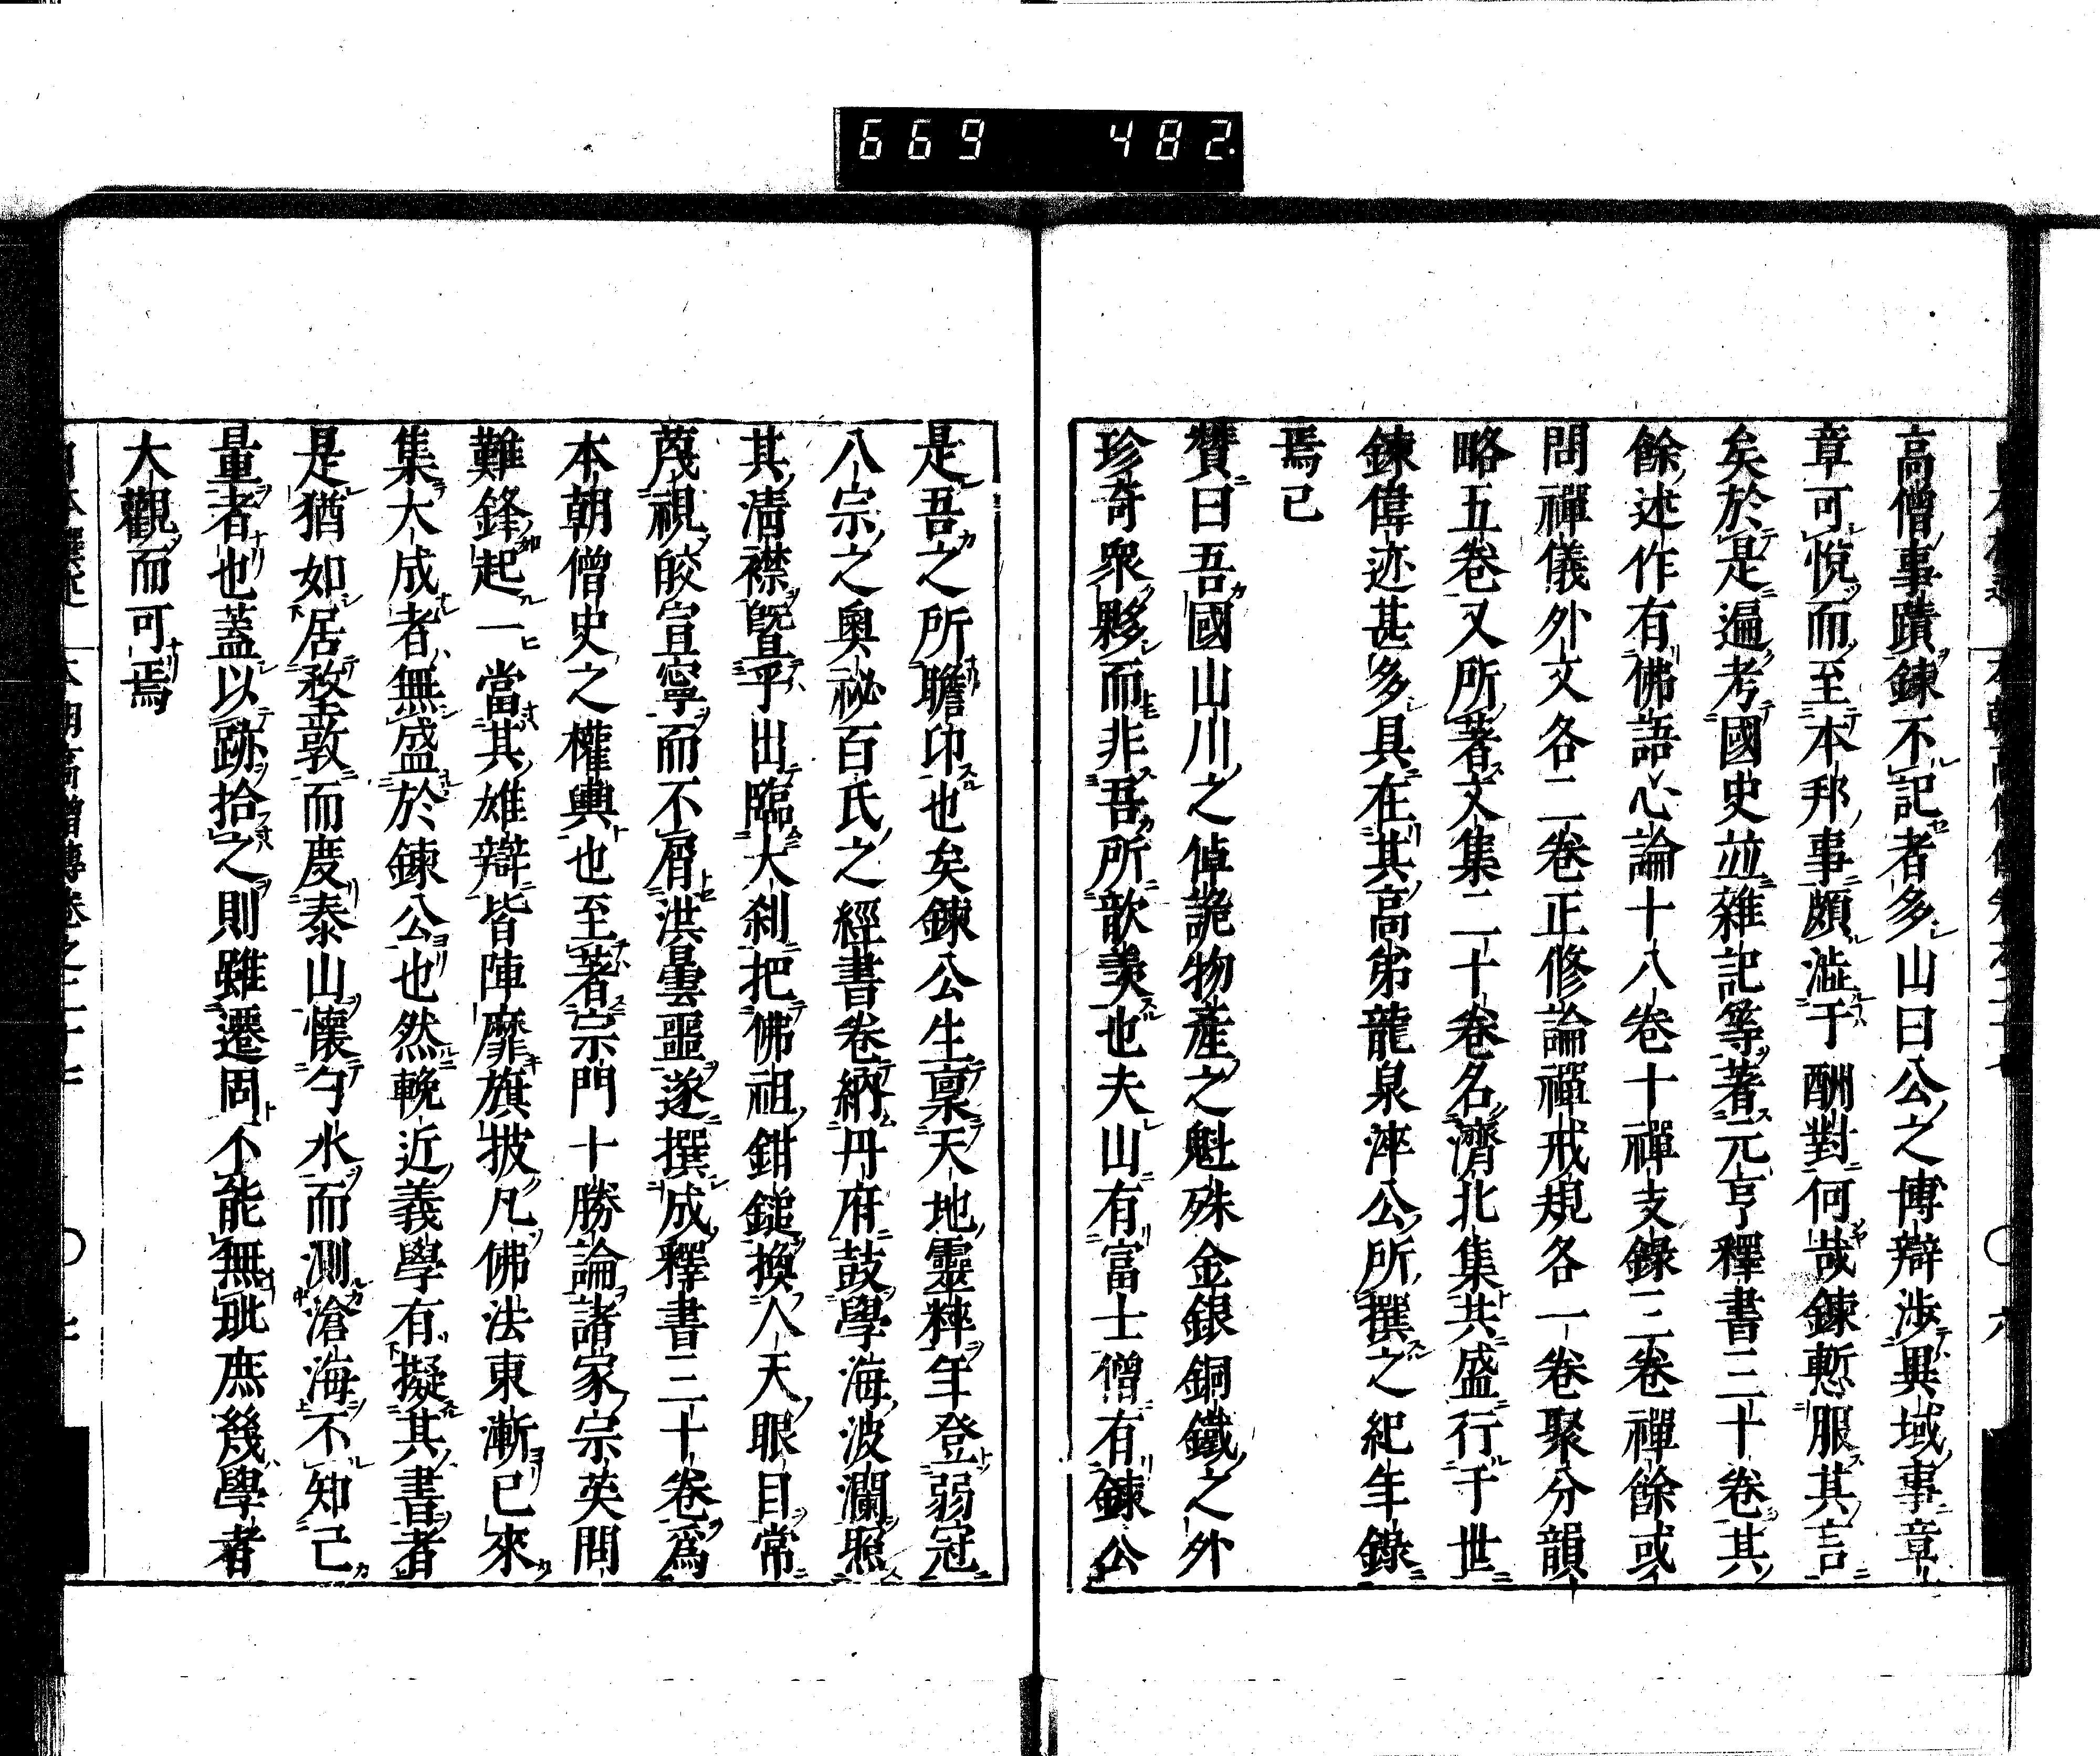 669 482
高僧事蹟鍊不記者多山曰公之博辯渉異域事章
章可悅而至本邦事頗澁于酬對何哉鍊慙服其言
矣於是遍考國史並雜記等著元亨釋書三十卷其
餘述作有佛語心論十八卷十禪支錄三卷禪餘或
問禪儀外文各二卷正修論禪戒規各一卷聚分韻
略五卷又所著文集二十卷名濟北集共盛行于世
鍊偉迹甚多具在其高弟龍泉淬公所撰之紀年錄
焉已
贊曰吾國山川之倬詭物產之魁殊金銀銅鐵之外
珍奇衆夥而非吾所歆羨也夫山有富士僧有鍊公
是吾之所瞻卬也矣鍊公生稟天地靈粹年登弱冠
八宗之奧祕百氏之經書卷納丹府鼓學海波瀾照
其淸襟曁乎出臨大刹把佛祖鉗鎚換人天眼目常
蔑視皎宣寧而不屑洪曇噩遂撰成釋書三十卷爲
本朝僧史之權輿也至著宗門十勝論諸家宗英問
難鋒起一當其雄辯皆陣靡旗披凡佛法東漸已來
集大成者無盛於鍊公也然輓近義學有擬其書者
是猶如居堥敦而度泰山懷勺水而測滄海不知己
量者也蓋以跡拾之則雖遷固不能無玼庶幾學者
大觀而可焉